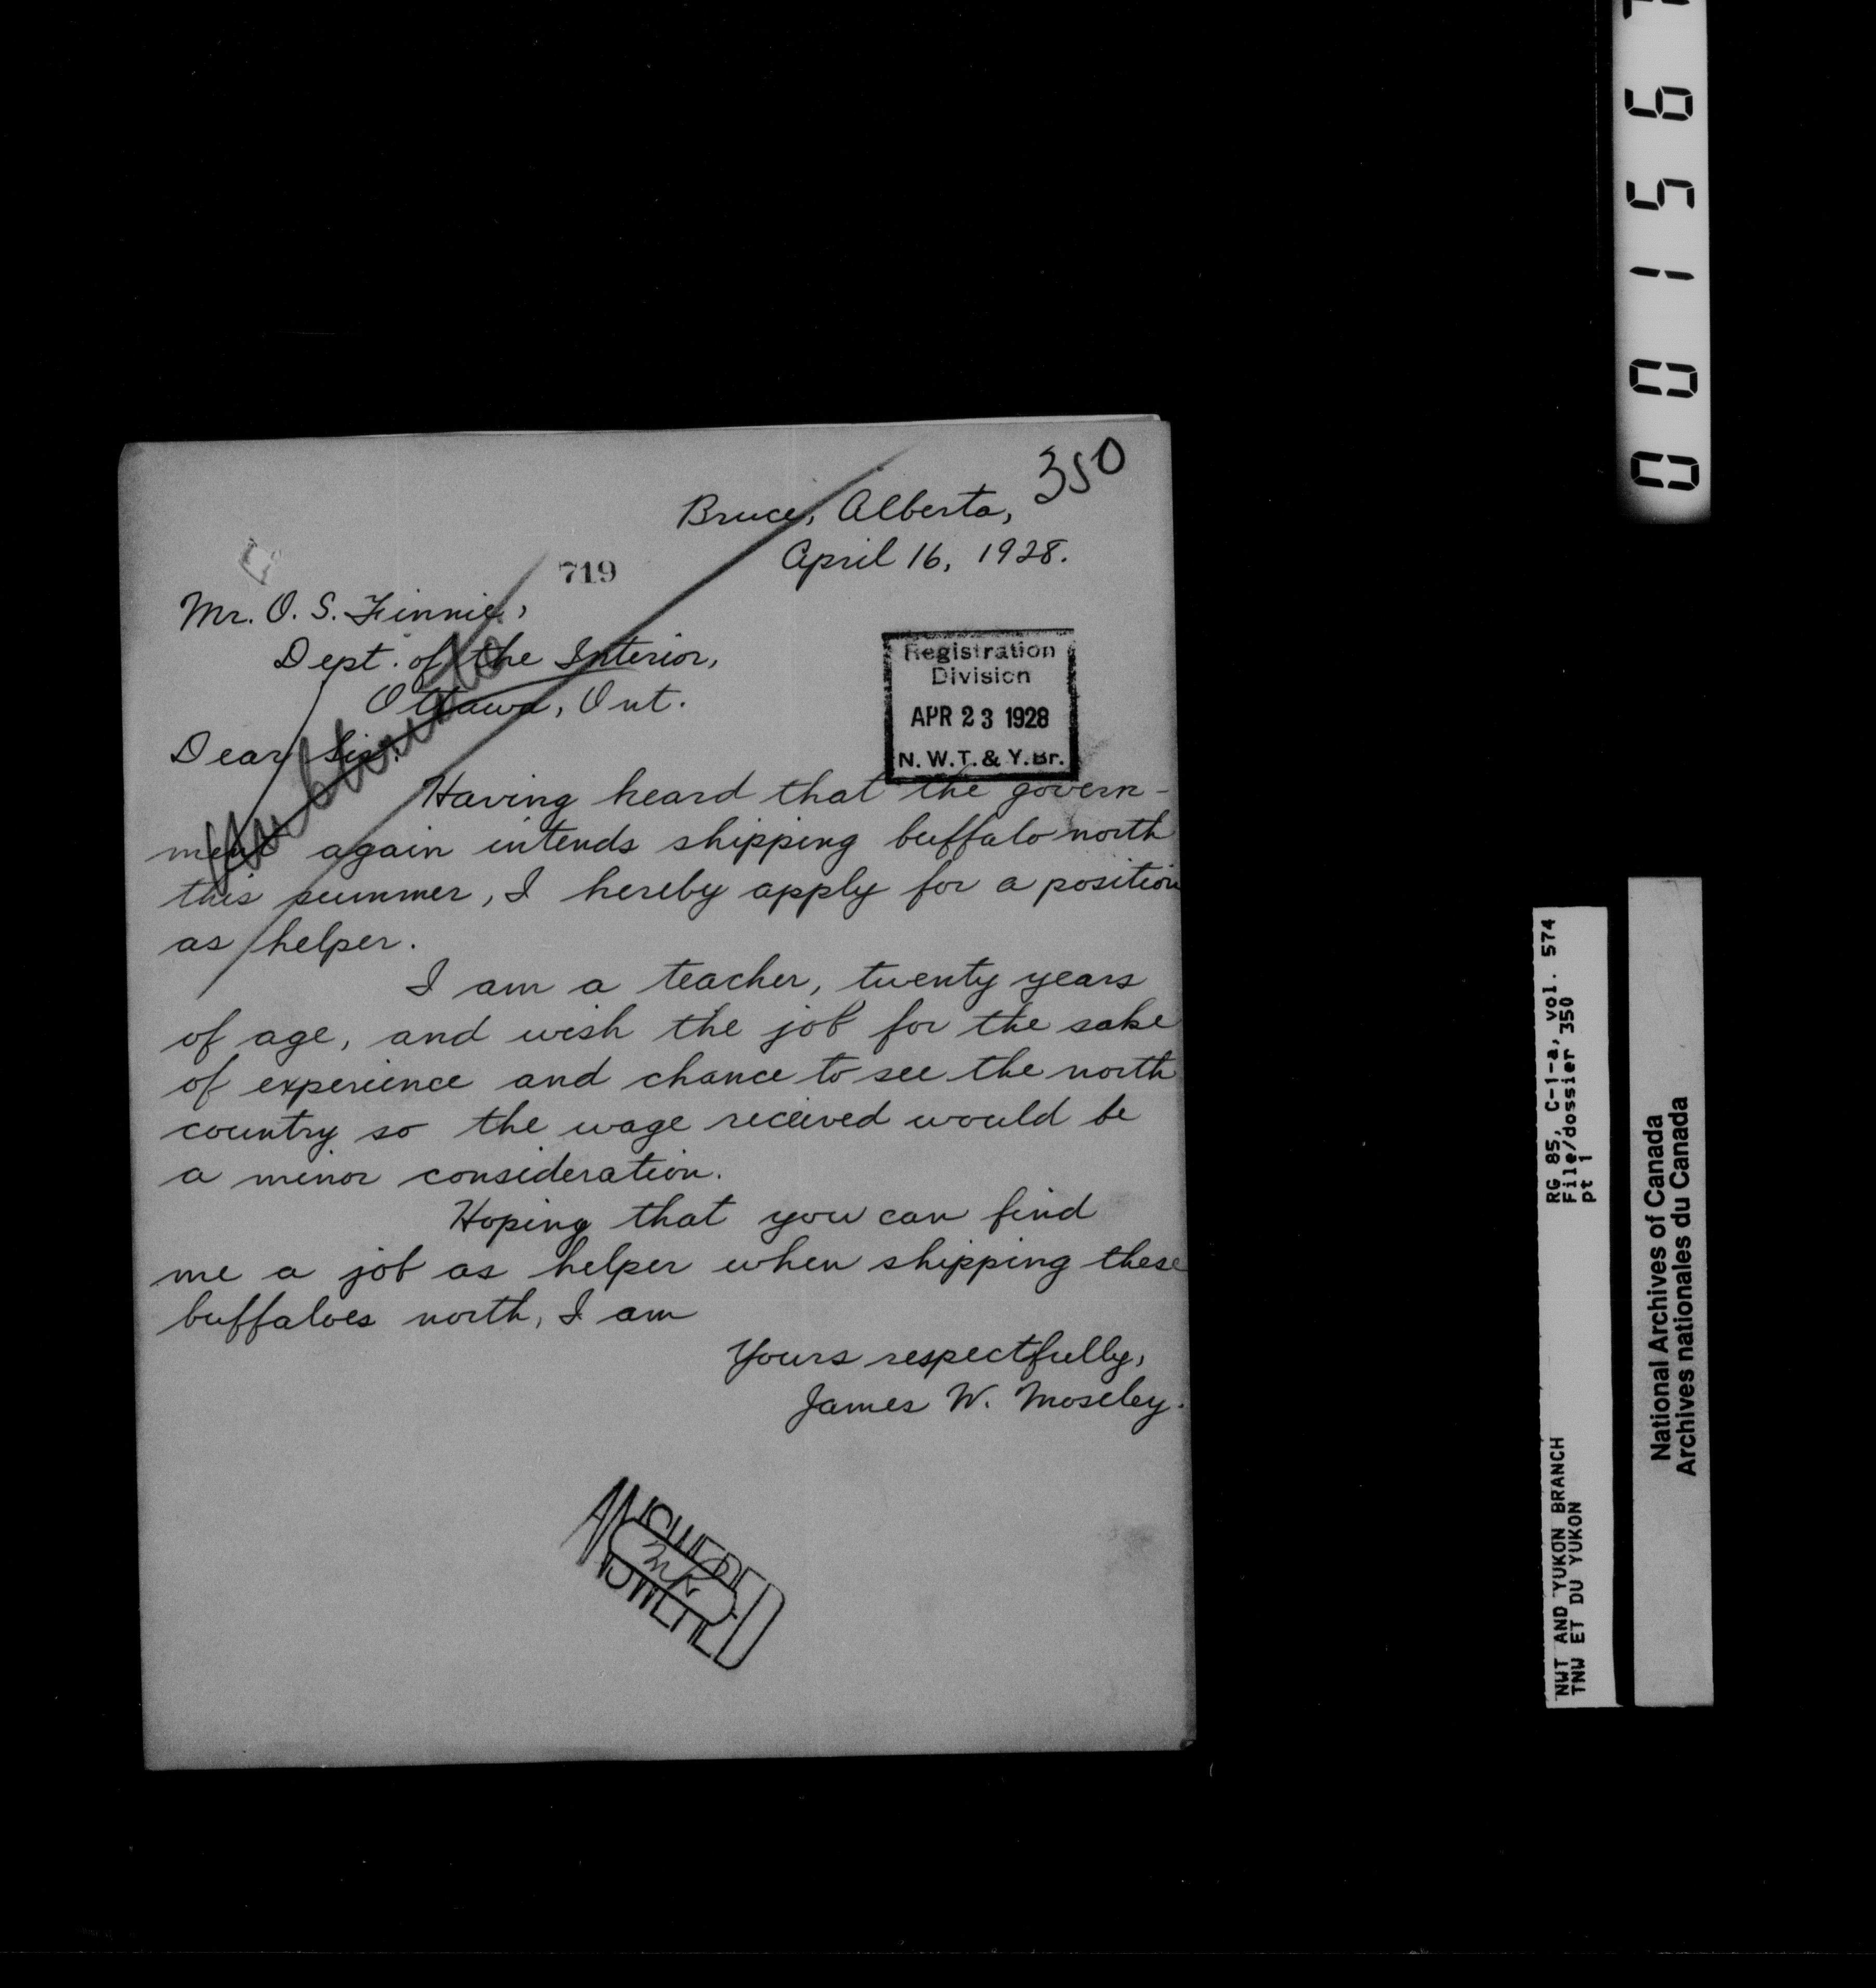 350
Bruce, Alberta,
April 16, 1928.
719
Mr. O. S. Finnie,
Dept. of the Interior,
Ottawa, Ont.
Registration
Division
APR 23 1928
N. W. T. & Y. Br.
Dear Sir:
Having heard that the govern-
ment again intends shipping buffalo north
this summer, I hereby apply for a position
as helper.
I am a teacher, twenty years
of age, and wish the job for the sake
of experience and chance to see the north
country so the wage received would be
a minor consideration.
Hoping that you can find
me a job as helper when shipping these
buffaloes north, I am
Yours respectfully,
James W. Moseley.
ANSWERED
ANSWERED
0 0 1 5 6
RG 85, C-1-a, vol. 574
File/dossier 350
pt 1
NWT AND YUKON BRANCH
TNW ET DU YUKON
National Archives of Canada
Archives nationales du Canada